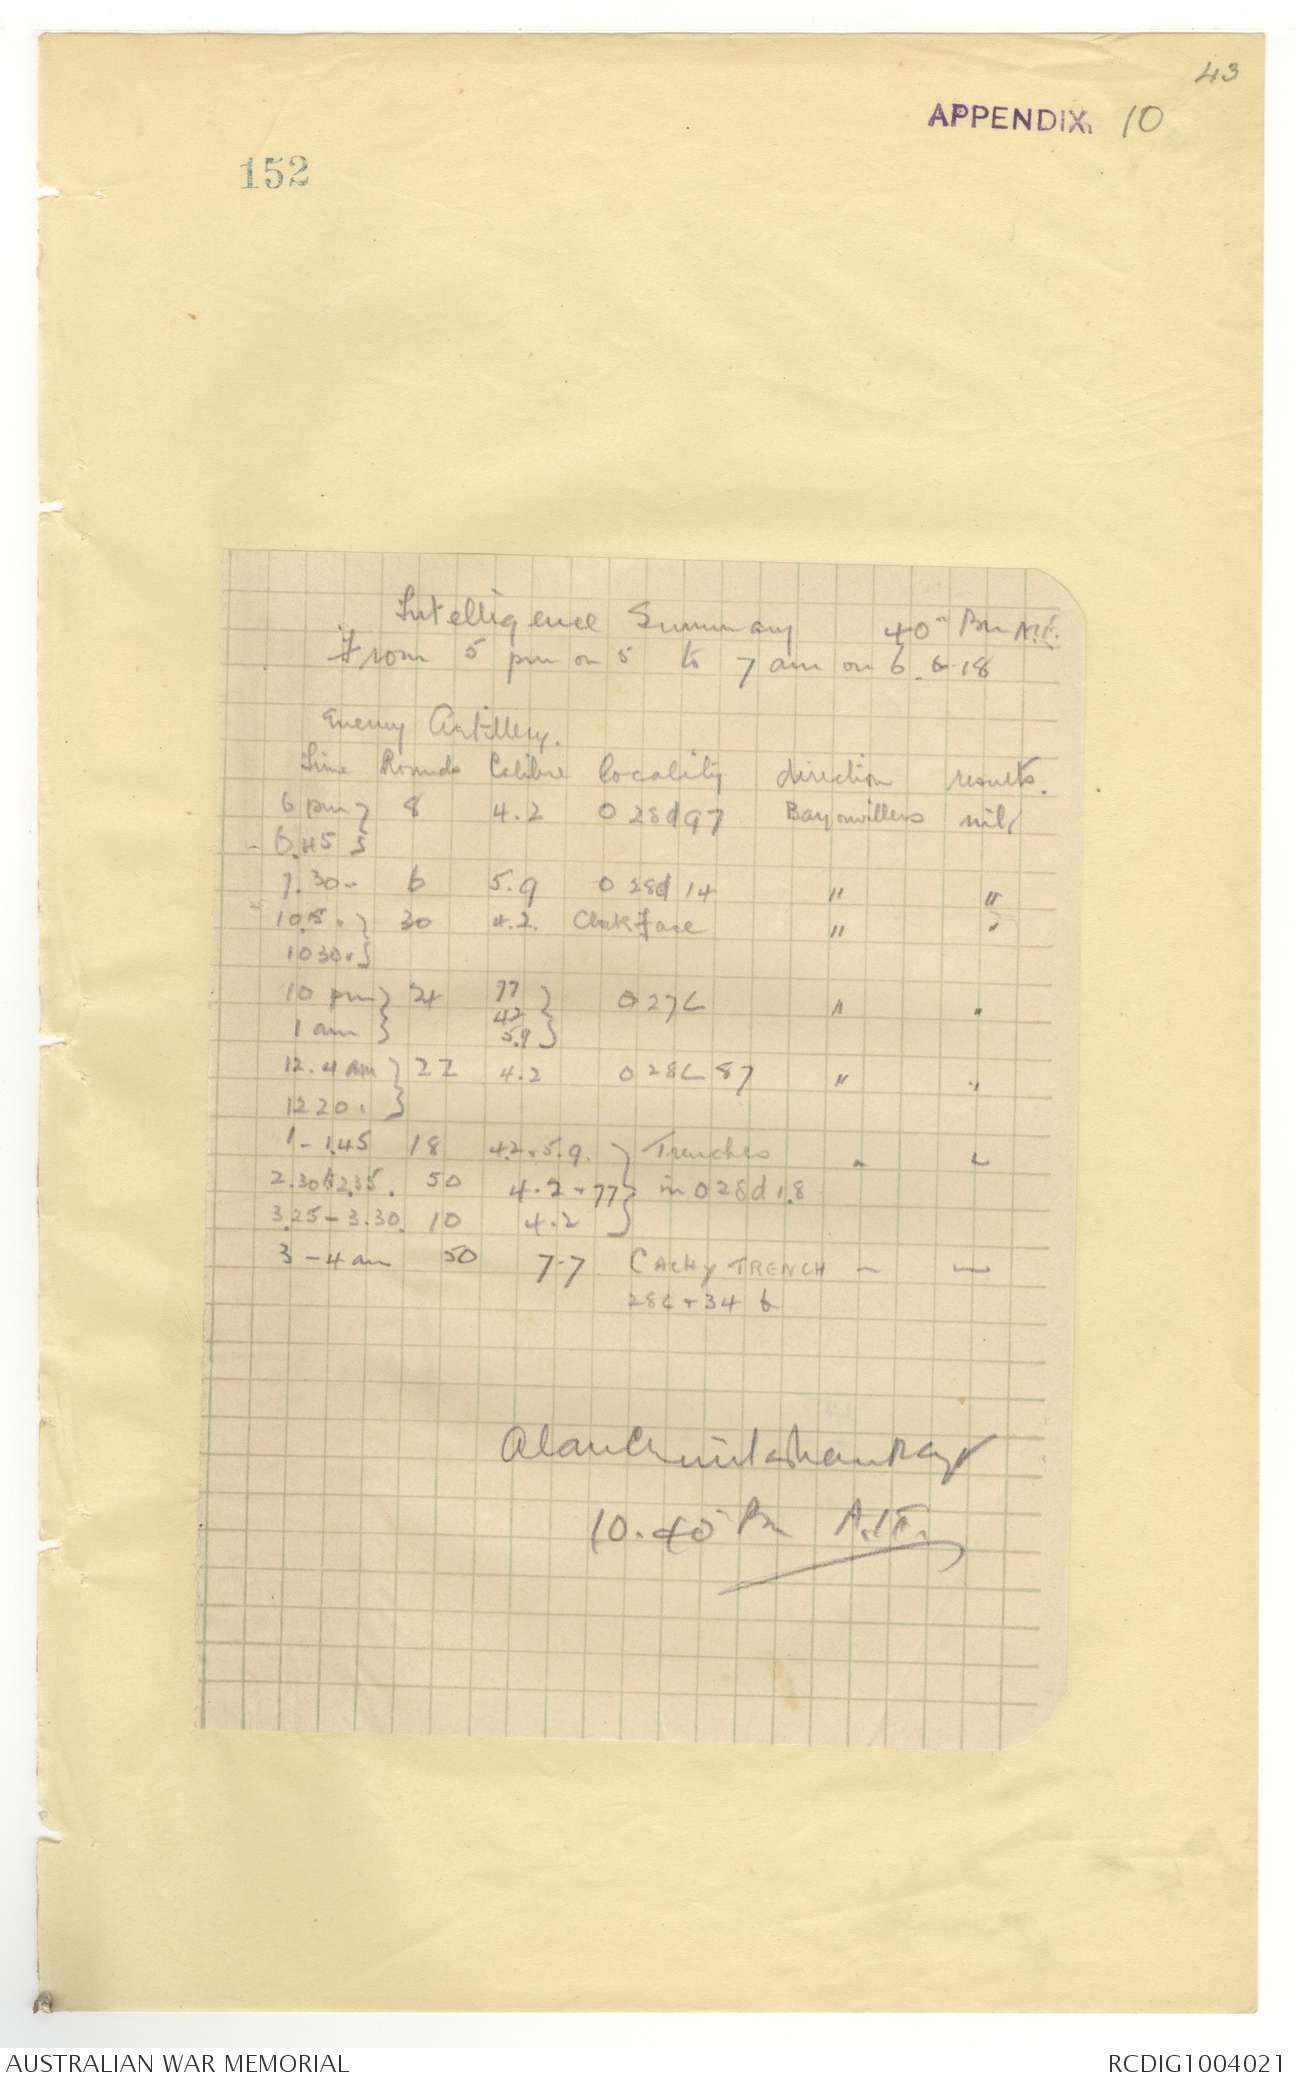 43
APPENDIX. 10
152
Intelligence Summary 40th Bn A.I.F.
From 5 pm on 5 to 7 am on 6.6.18
Enemy Artillery.
Time Rounds Calibre locality direction results.
6 pm } 8 4.2 O 28d 97 Bayonvillers nil
- 6.45 }
7.30 " 6 5.9 O 28d 14 " "
10.15 " } 30 4.2. " "
1030 " }
10 pm } 24 77 } O 27c " "
42
1 am } 5.9 }
12.4 am } 22 4.2 O 28c 87 " "
12 20 " }
1 - 1.45 18 4.2 + 5.9. } Trenches " "
2.30 to 2.35. 50 4.2 + 77 } in O 28d 1.8
3.25 - 3.30. 10 4.2 }
3 - 4 am 50 7.7 CACHY TRENCH — —
28c + 34 b
Alan
IO. 40th Bn A.I.F.
AUSTRALIAN WAR MEMORIAL
RCDIG1004021